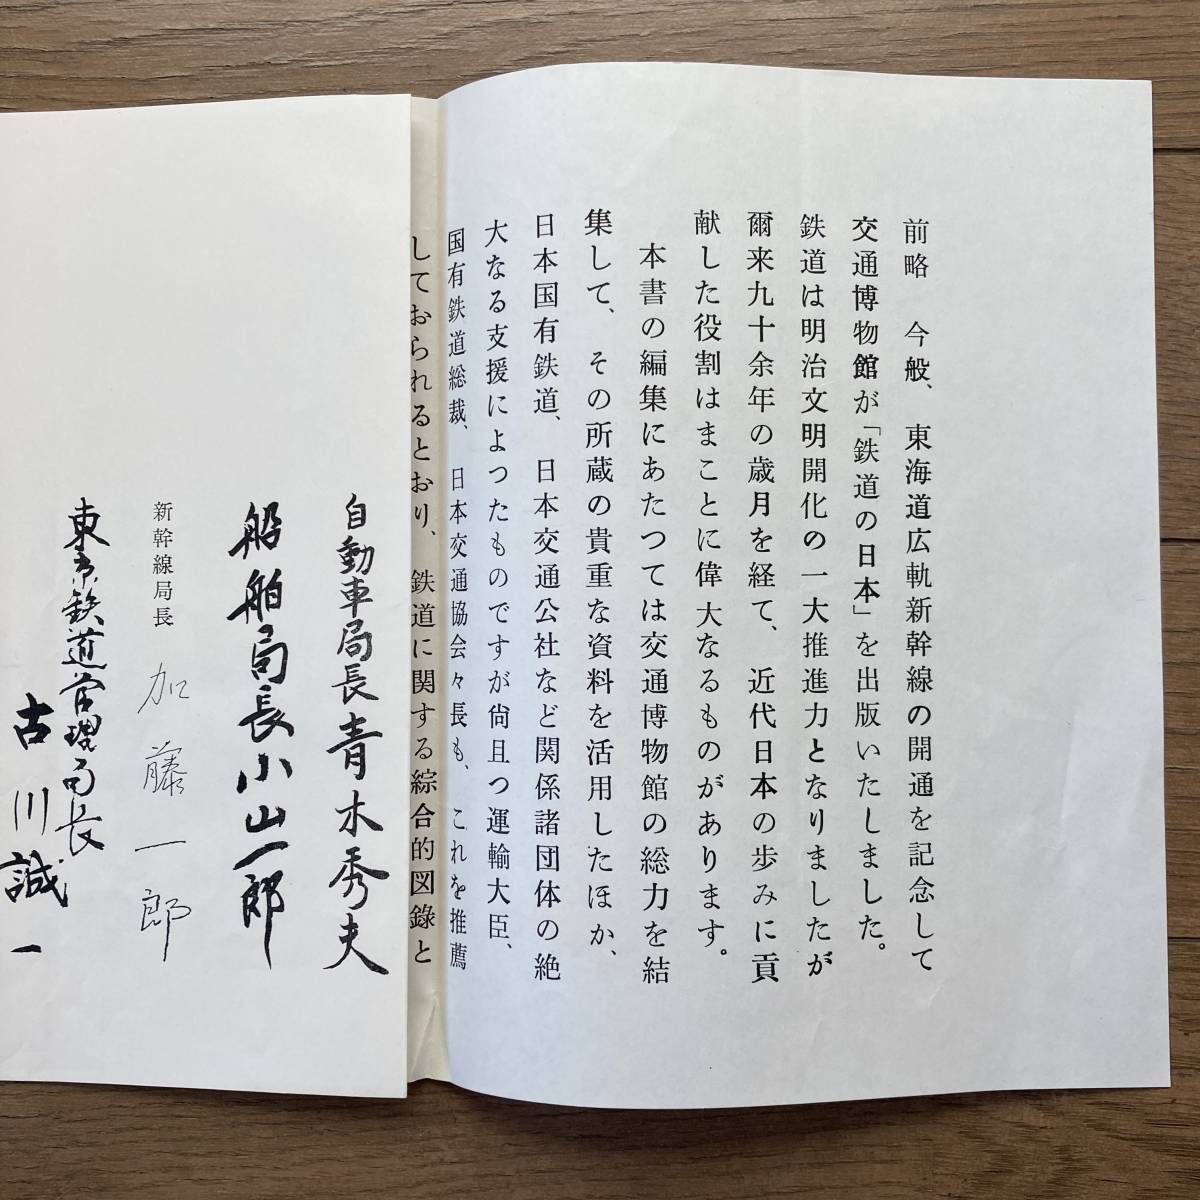 前略　今般、東海道広軌新幹線の開通を記念して
交通博物館が「鉄道の日本」を出版いたしました。
鉄道は明治文明開化の一大推進力となりましたが
爾来九十余年の歳月を経て、近代日本の歩みに貢
献した役割はまことに偉大なるものがあります。
本書の編集にあたつては交通博物館の総力を結
集して、その所蔵の貴重な資料を活用したほか、
日本国有鉄道、日本交通公社など関係諸団体の絶
大なる支援によつたものですが尚且つ運輸大臣、
国有鉄道総裁、日本交通協会々長も、これを推薦
しておられるとおり、鉄道に関する綜合的図録と
自動車局長青木秀夫
船舶局長小山一郎
新幹線局長 加藤一郎
東京鉄道管理局長
古川誠一